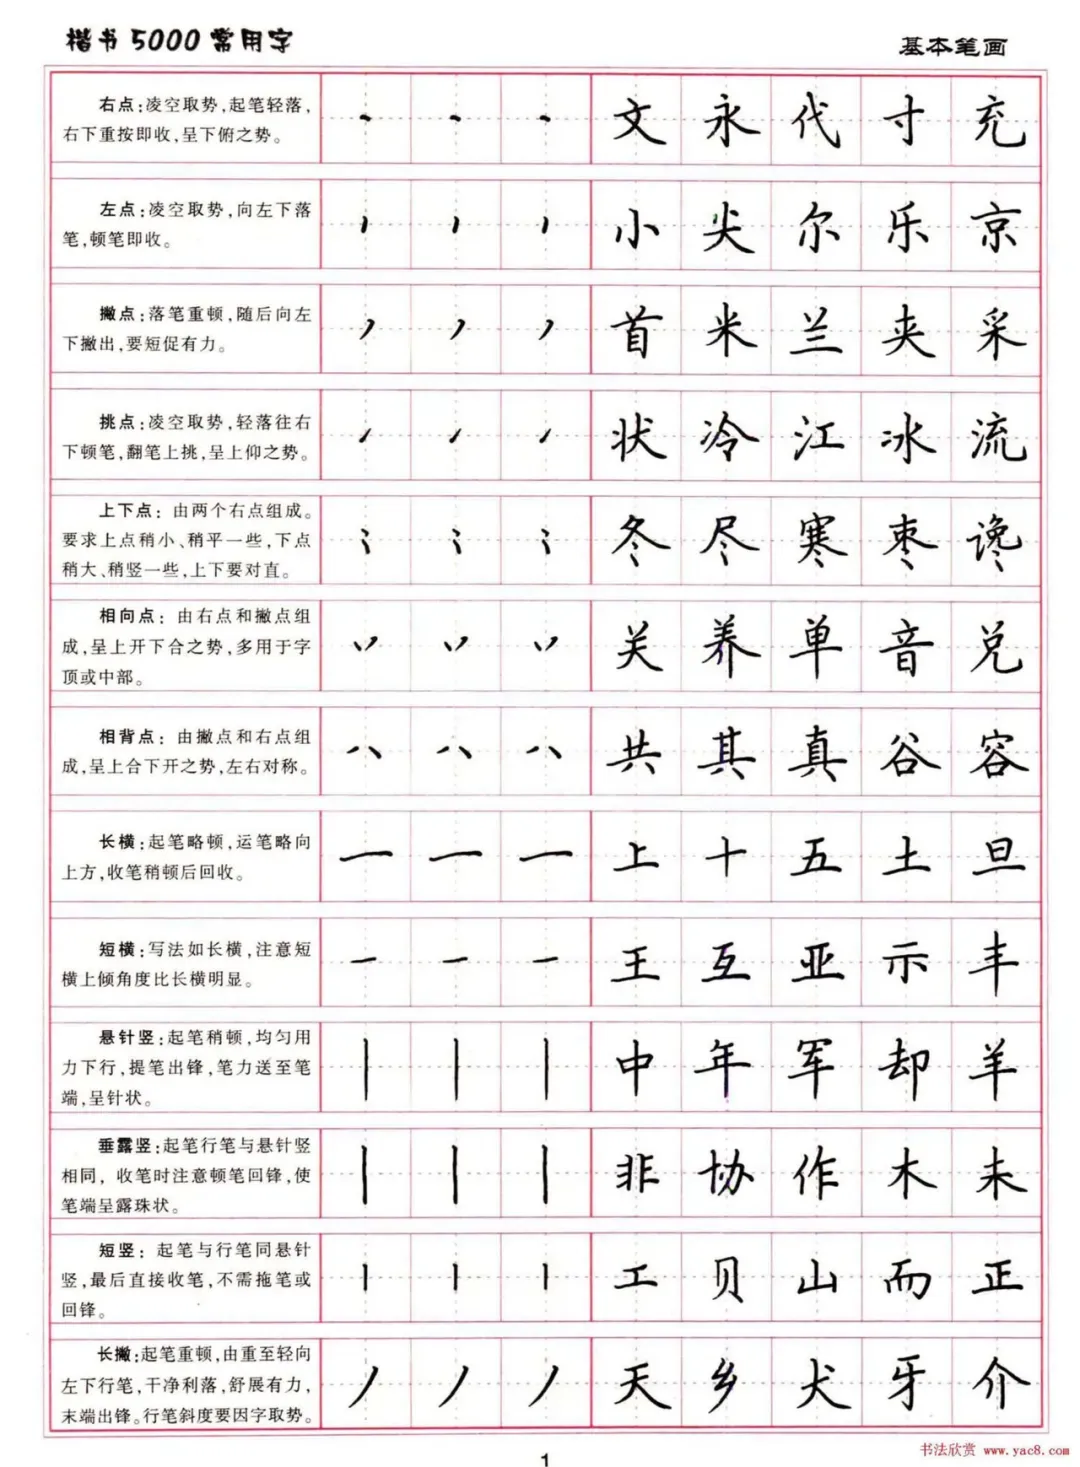 楷书5000常用字
基本笔画
右点:凌空取势,起笔轻落,
右下重按即收,呈下俯之势。
文 永 代 寸 充
左点:凌空取势,向左下落
笔,顿笔即收。
小 尖 尔 乐 京
撇点:落笔重顿,随后向左
下撇出,要短促有力。
首 米 兰 夹 采
挑点:凌空取势,轻落往右
下顿笔,翻笔上挑,呈上仰之势。
状 冷 江 冰 流
上下点:由两个右点组成。
要求上点稍小、稍平一些,下点
稍大、稍竖一些,上下要对直。
冬 尽 寒 枣 谗
相向点:由右点和撇点组
成,呈上开下合之势,多用于字
顶或中部。
关 养 单 音 兑
相背点:由撇点和右点组
成,呈上合下开之势,左右对称。
共 其 真 谷 容
长横:起笔略顿,运笔略向
上方,收笔稍顿后回收。
上 十 五 土 旦
短横:写法如长横,注意短
横上倾角度比长横明显。
王 互 亚 示 丰
悬针竖:起笔稍顿,均匀用
力下行,提笔出锋,笔力送至笔
端,呈针状。
中 年 军 却 羊
垂露竖:起笔行笔与悬针竖
相同,收笔时注意顿笔回锋,使
笔端呈露珠状。
非 协 作 木 未
短竖:起笔与行笔同悬针
竖,最后直接收笔,不需拖笔或
回锋。
工 贝 山 而 正
长撇:起笔重顿,由重至轻向
左下行笔,干净利落,舒展有力,
末端出锋。行笔斜度要因字取势。
天 乡 犬 牙 介
1
书法欣赏 www.yac8.com